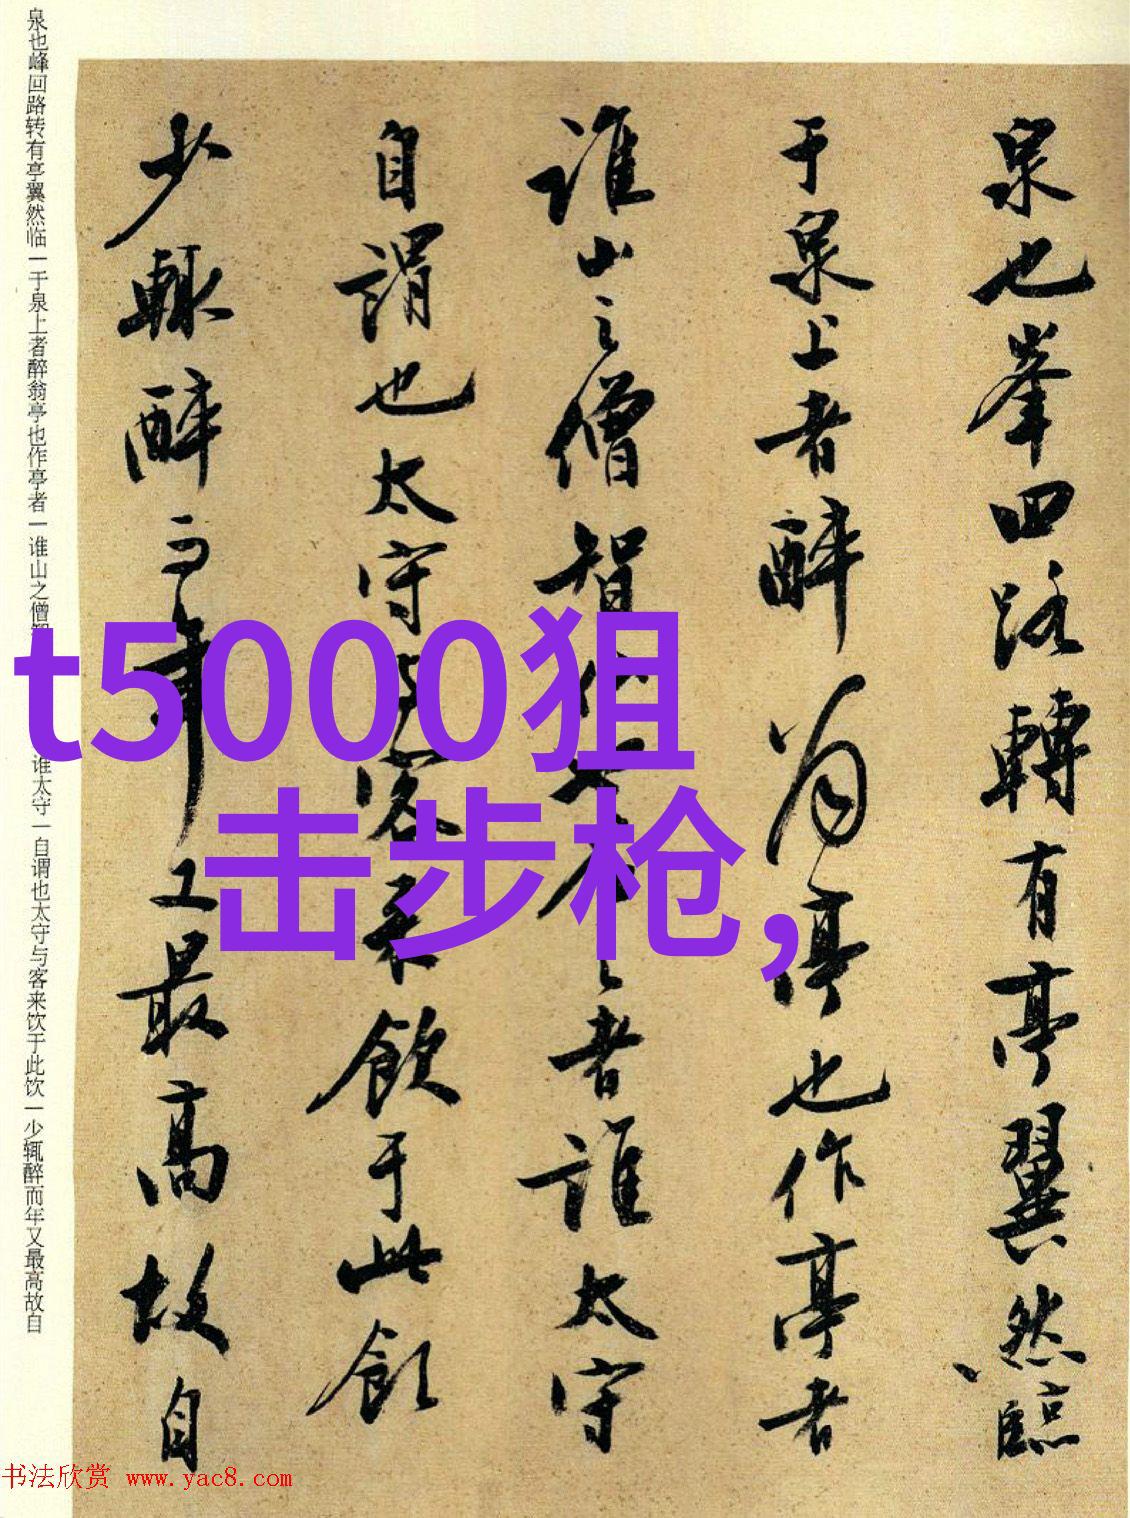 泉也峯回路轉有亭翼然臨
于泉上者醉翁亭也作亭者
誰山之僧智仙也名之者誰太守
自謂也太守与客来飲于此飲
少輒醉而年又最高故自
t5000狙
击步枪,
泉也峰回路转有亭翼然临一于泉上者醉翁亭也作亭者一谁山之僧
谁太守一自谓也太守与客来饮于此饮一少辄醉而年又最高故自
书法欣赏 www.yac8.com